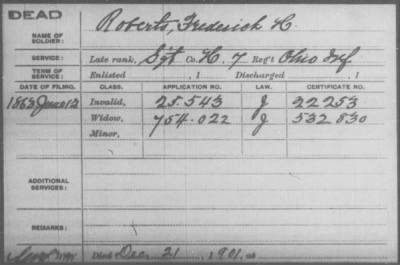 DEAD
NAME OF SOLDIER: Roberts, Frederick H.
SERVICE: Late rank, Sgt Co. H, 7 Reg't Ohio Inf.
TERM OF SERVICE: Enlisted , 1 Discharged , 1
DATE OF FILING. CLASS. APPLICATION NO. LAW. CERTIFICATE NO.
1863 June 12 Invalid, 25.543 J 22253
Widow, 754.022 J 532830
Minor,
ADDITIONAL SERVICES:
REMARKS:
Died Dec. 21, 1901, at